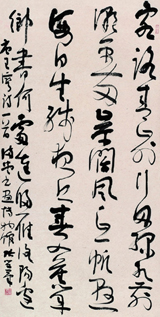 客路青山外行舟綠水前
潮平兩岸闊風正一帆懸
海日生殘夜江春入舊年
鄉書何處達歸雁洛陽邊
王灣詩一首